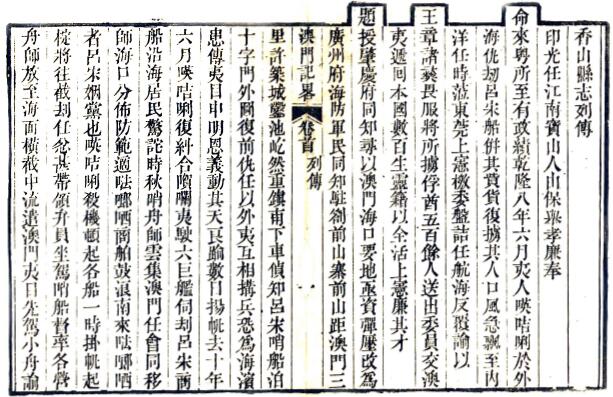 香山縣志列傳
印光任江南寶山人由保舉孝廉奉
命來粤所至有政績乾隆八年六月夷人㗲咭唎於外
海仇刼呂宋船併其貲貨復擄其人口風急飄至內
洋任時蒞東莞上憲檄委盤詰任航海反覆諭以
王章諸彝畏服將所擄俘酋五百餘人送出委員交澳
夷遞回本國數百生靈藉以全活上憲廉其才
題授肇慶府同知尋以澳門海口要地亟資彈壓改爲
廣州府海防軍民同知駐劄前山寨前山距澳門三
澳門記畧 卷首 列傳
里許築城鑿池屹然重鎮甫下車偵知呂宋哨船泊
十字門外圖復前仇任以外夷互相搆兵恐爲海濱
患傳夷目申明恩義動其天良踰數日揚帆去十年
六月㗲咭唎復糾合嘪囒夷駛六巨艦伺刼呂宋商
船沿海居民驚詫時秋哨舟師雲集澳門任會同移
師海口分佈防範適㕵嘲哂商舶鼓浪南來㕵嘲哂
者呂宋姻黨也㗲咭唎殺機頓起各船一時掛帆起
椗將往截刼任忿甚帶領弁員坐駕哨船督率各營
舟師放至海面橫截中流遣澳門夷目先駕小舟諭